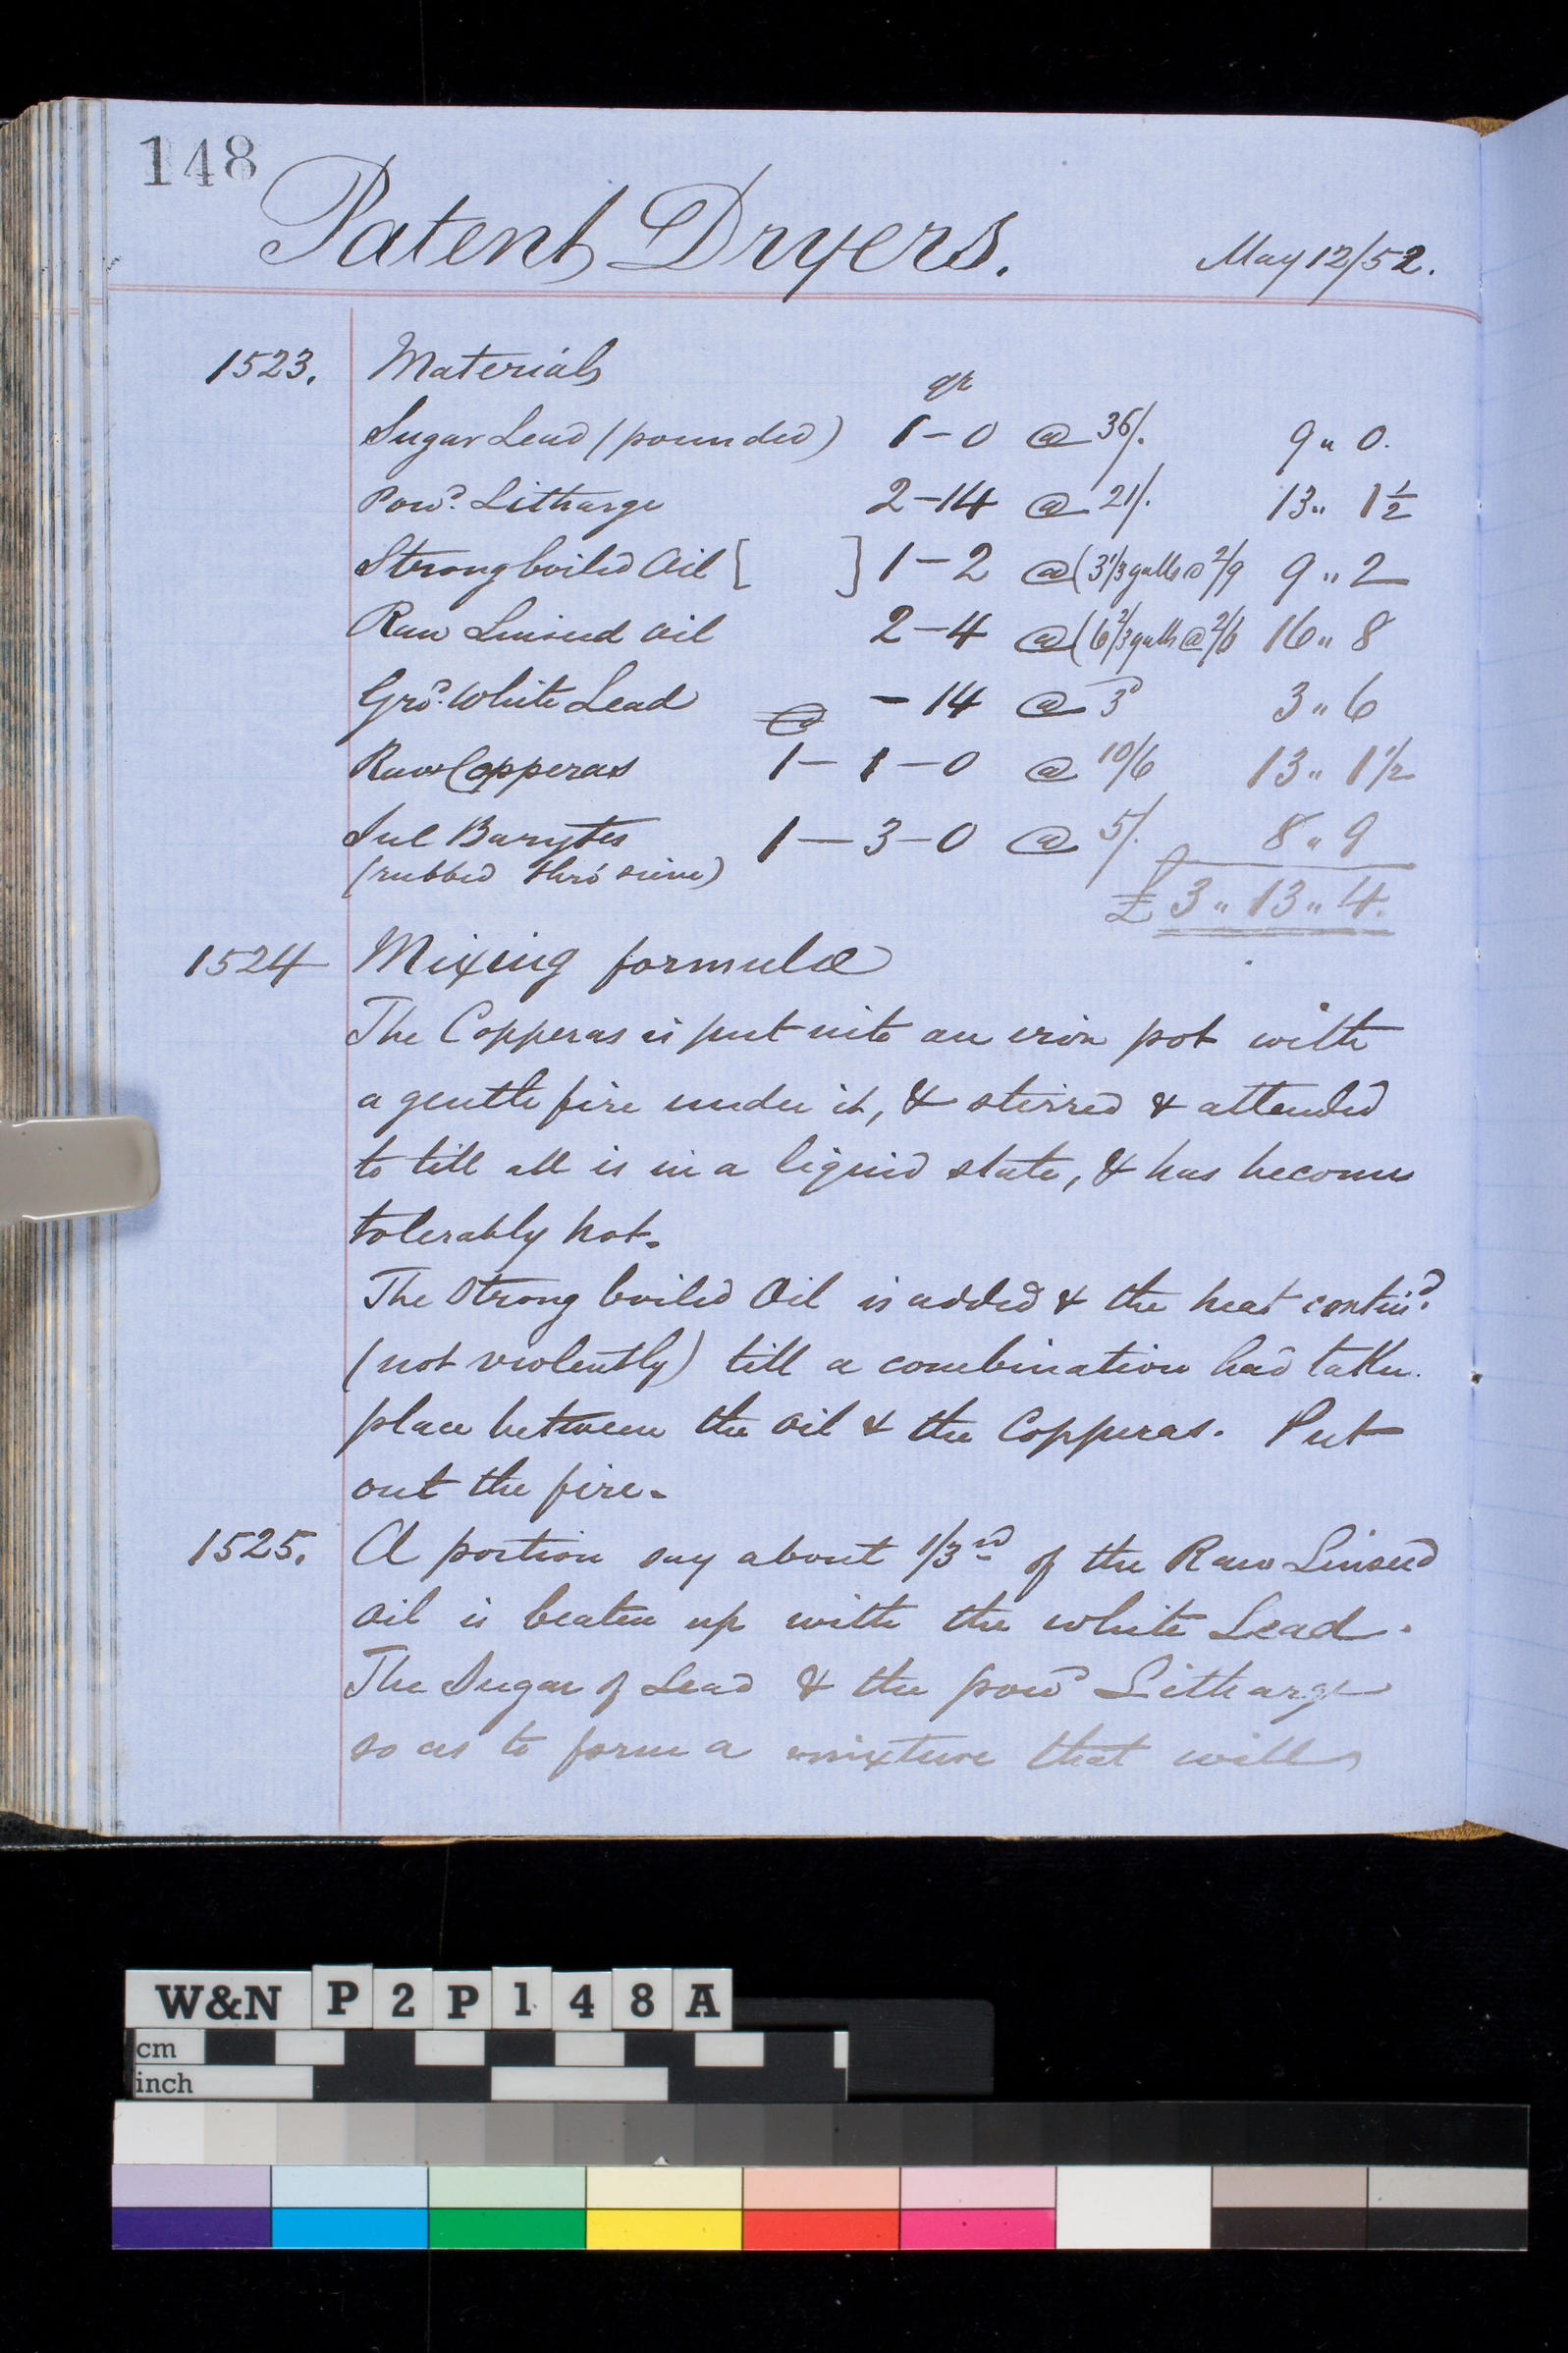 148
Patent Dryers.
May 12/52.
1523. Materials
qr
Sugar Lead (pounded) 1-0 @ 36/. 9 " 0.
Powd. Litharge 2-14 @ 21/. 13 " 1 1/2
Strong boiled Oil [ ] 1-2 @ (3 1/3 galls @ 2/9 9 " 2
Raw Linseed Oil 2-4 @ (6 2/3 galls @ 2/6 16 " 8
Grd. White Lead @ -14 @ 3d 3 " 6
Raw Copperas 1-1-0 @ 10/6 13 " 1 1/2
Sul Barytes 1-3-0 @ 5/. 8 " 9
(rubbed thro' sieve)
£ 3 " 13 " 4.
1524 Mixing formulæ
The Copperas is put into an iron pot with
a gentle fire under it, & stirred & attended
to till all is in a liquid state, & has become
tolerably hot.
The Strong boiled Oil is added & the heat contind.
(not violently) till a combination had taken
place between the Oil & the Copperas. Put
out the fire.
1525. A portion say about 1/3rd of the Raw Linseed
Oil is beaten up with the white Lead.
The Sugar of Lead & the powd Litharge
so as to form a mixture that will
W&N P2P148A
cm
inch